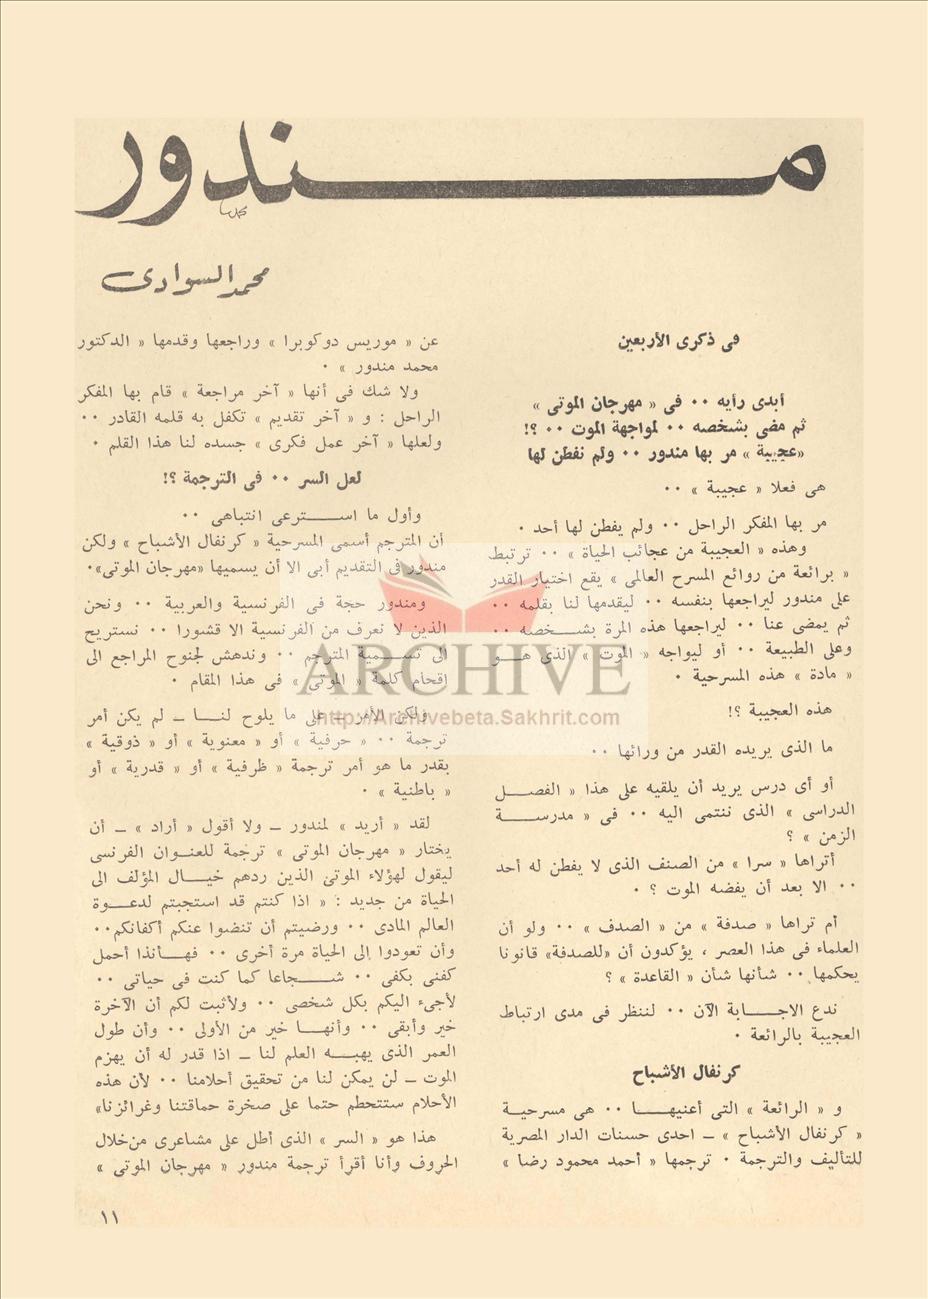 منـدور
محمد السوادى
فى ذكرى الأربعين
أبدى رأيه ٠٠ فى « مهرجان الموتى »
ثم مضى بشخصه ٠٠ لمواجهة الموت ٠٠ ؟!
«عجيبة » مر بها مندور ٠٠ ولم نفطن لها
هى فعلا « عجيبة » ٠٠
مر بها المفكر الراحل ٠٠ ولم يفطن لها أحد ٠
وهذه « العجيبة من عجائب الحياة » ٠٠ ترتبط
« برائعة من روائع المسرح العالمى » يقع اختيار القدر
على مندور ليراجعها بنفسه ٠٠ ليقدمها لنا بقلمه ٠٠
ثم يمضى عنا ٠٠ ليراجعها هذه المرة بشـــخصه ٠٠
وعلى الطبيعة ٠٠ أو ليواجه « الموت » الذى هـــو
« مادة » هذه المسرحية ٠
هذه العجيبة ؟!
ما الذى يريده القدر من ورائها ٠٠
أو أى درس يريد أن يلقيه على هذا « الفصـــل
الدراسى » الذى ننتمى اليه ٠٠ فى « مدرســـة
الزمن » ؟
أتراها « سرا » من الصنف الذى لا يفطن له أحد
٠٠ الا بعد أن يفضه الموت ؟ ٠
أم تراها « صدفة » من « الصدف » ٠٠ ولو أن
العلماء فى هذا العصر ، يؤكدون أن «للصدفة» قانونا
يحكمها ٠٠ شأنها شأن « القاعدة » ؟
ندع الاجـــابة الآن ٠٠ لننظر فى مدى ارتباط
العجيبة بالرائعة ٠
كرنفال الأشباح
و « الرائعة » التى أعنيهـــا ٠٠ هى مسرحيــة
« كرنفال الأشباح » ــ احدى حسنات الدار المصرية
للتأليف والترجمة ٠ ترجمها « أحمد محمود رضا »
عن « موريس دوكوبرا » وراجعها وقدمها « الدكتور
محمد مندور » ٠
ولا شك فى أنها « آخر مراجعة » قام بها المفكر
الراحل : و « آخر تقديم » تكفل به قلمه القادر ٠٠
ولعلها « آخر عمل فكرى » جسده لنا هذا القلم ٠
لعل السر ٠٠ فى الترجمة ؟!
وأول ما اســـترعى انتباهى ٠٠
أن المترجم أسمى المسرحية « كرنفال الأشباح » ولكن
مندور فى التقديم أبى الا أن يسميها «مهرجان الموتى»٠
ومندور حجة فى الفرنسية والعربية ٠٠ ونحن
الذين لا نعرف من الفرنسية الا قشورا ٠٠ نستريح
الى تسمية المترجم ٠٠ وندهش لجنوح المراجع الى
إقحام كلمة « الموتى » فى هذا المقام ٠
ولكن الأمر ــ على ما يلوح لنـــا ــ لم يكن أمر
ترجمة ٠٠ « حرفية » أو « معنوية » أو « ذوقية »
بقدر ما هو أمر ترجمة « ظرفية » أو « قدرية » أو
« باطنية » ٠
لقد « أريد » لمندور ــ ولا أقول « أراد » ــ أن
يختار « مهرجان الموتى » ترجمة للعنـــوان الفرنسى
ليقول لهؤلاء الموتى الذين ردهم خيـــال المؤلف الى
الحياة من جديد : « اذا كنتم قد استجبتم لدعـــوة
العالم المادى ٠٠ ورضيتم أن تنضوا عنكم أكفانكم٠٠
وأن تعودوا إلى الحياة مرة أخرى ٠٠ فهـــأنذا أحمل
كفنى بكفى ٠٠ شـــجاعا كما كنت فى حياتى ٠٠
لأجىء اليكم بكل شخصى ٠٠ ولأثبت لكم أن الآخرة
خير وأبقى ٠٠ وأنهـــا خير من الأولى ٠٠ وأن طول
العمر الذى يهبـــه العلم لنا ــ اذا قدر له أن يهزم
الموت ــ لن يمكن لنا من تحقيق أحلامنا ٠٠ لأن هذه
الأحلام ستتحطم حتما على صخرة حماقتنا وغرائزنا»
هذا هو « السر » الذى أطل على مشاعرى من خلال
الحروف وأنا أقرأ ترجمة مندور « مهرجان الموتى »
١١
ARCHIVE
http://Archivebeta.Sakhrit.com